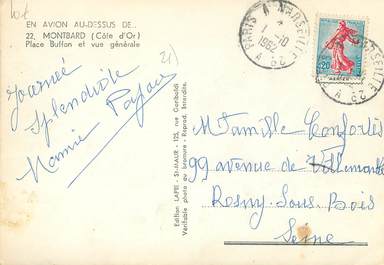 EN AVION AU-DESSUS DE...
22, MONTBARD (Côte d'Or)
Place Buffon et vue générale
21)
Journée
Splendide
Mamie
Edition LAPIE - St-MAUR - 125, rue Garibaldi
Véritable photo au bromure - Reprod. Interdite.
PARIS A MARSEILLE
1962
0,20
Mr famille Confortès
99 avenue de Villemomble
Rosny-Sous-Bois
Seine